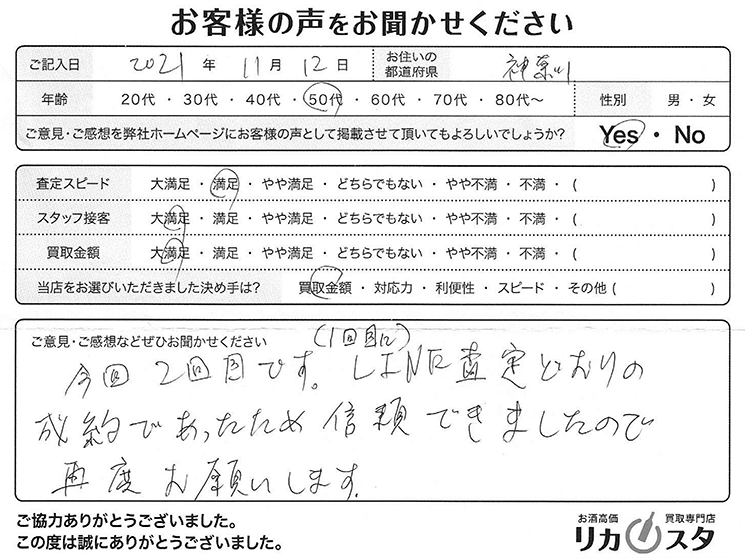 お客様の声をお聞かせください
ご記入日 2021 年 11 月 12 日 お住いの都道府県 神奈川
年齢 20代 ・ 30代 ・ 40代 ・ 50代 ・ 60代 ・ 70代 ・ 80代〜 性別 男 ・ 女
ご意見・ご感想を弊社ホームページにお客様の声として掲載させて頂いてもよろしいでしょうか? Yes ・ No
査定スピード 大満足 ・ 満足 ・ やや満足 ・ どちらでもない ・ やや不満 ・ 不満 ・ ( )
スタッフ接客 大満足 ・ 満足 ・ やや満足 ・ どちらでもない ・ やや不満 ・ 不満 ・ ( )
買取金額 大満足 ・ 満足 ・ やや満足 ・ どちらでもない ・ やや不満 ・ 不満 ・ ( )
当店をお選びいただきました決め手は? 買取金額 ・ 対応力 ・ 利便性 ・ スピード ・ その他 ( )
ご意見・ご感想などぜひお聞かせください
(1回目に)
今回2回目です。LINE査定どおりの
成約であったため信頼できましたので
再度お願いします。
ご協力ありがとうございました。
この度は誠にありがとうございました。
お酒高価 買取専門店
リカスタ